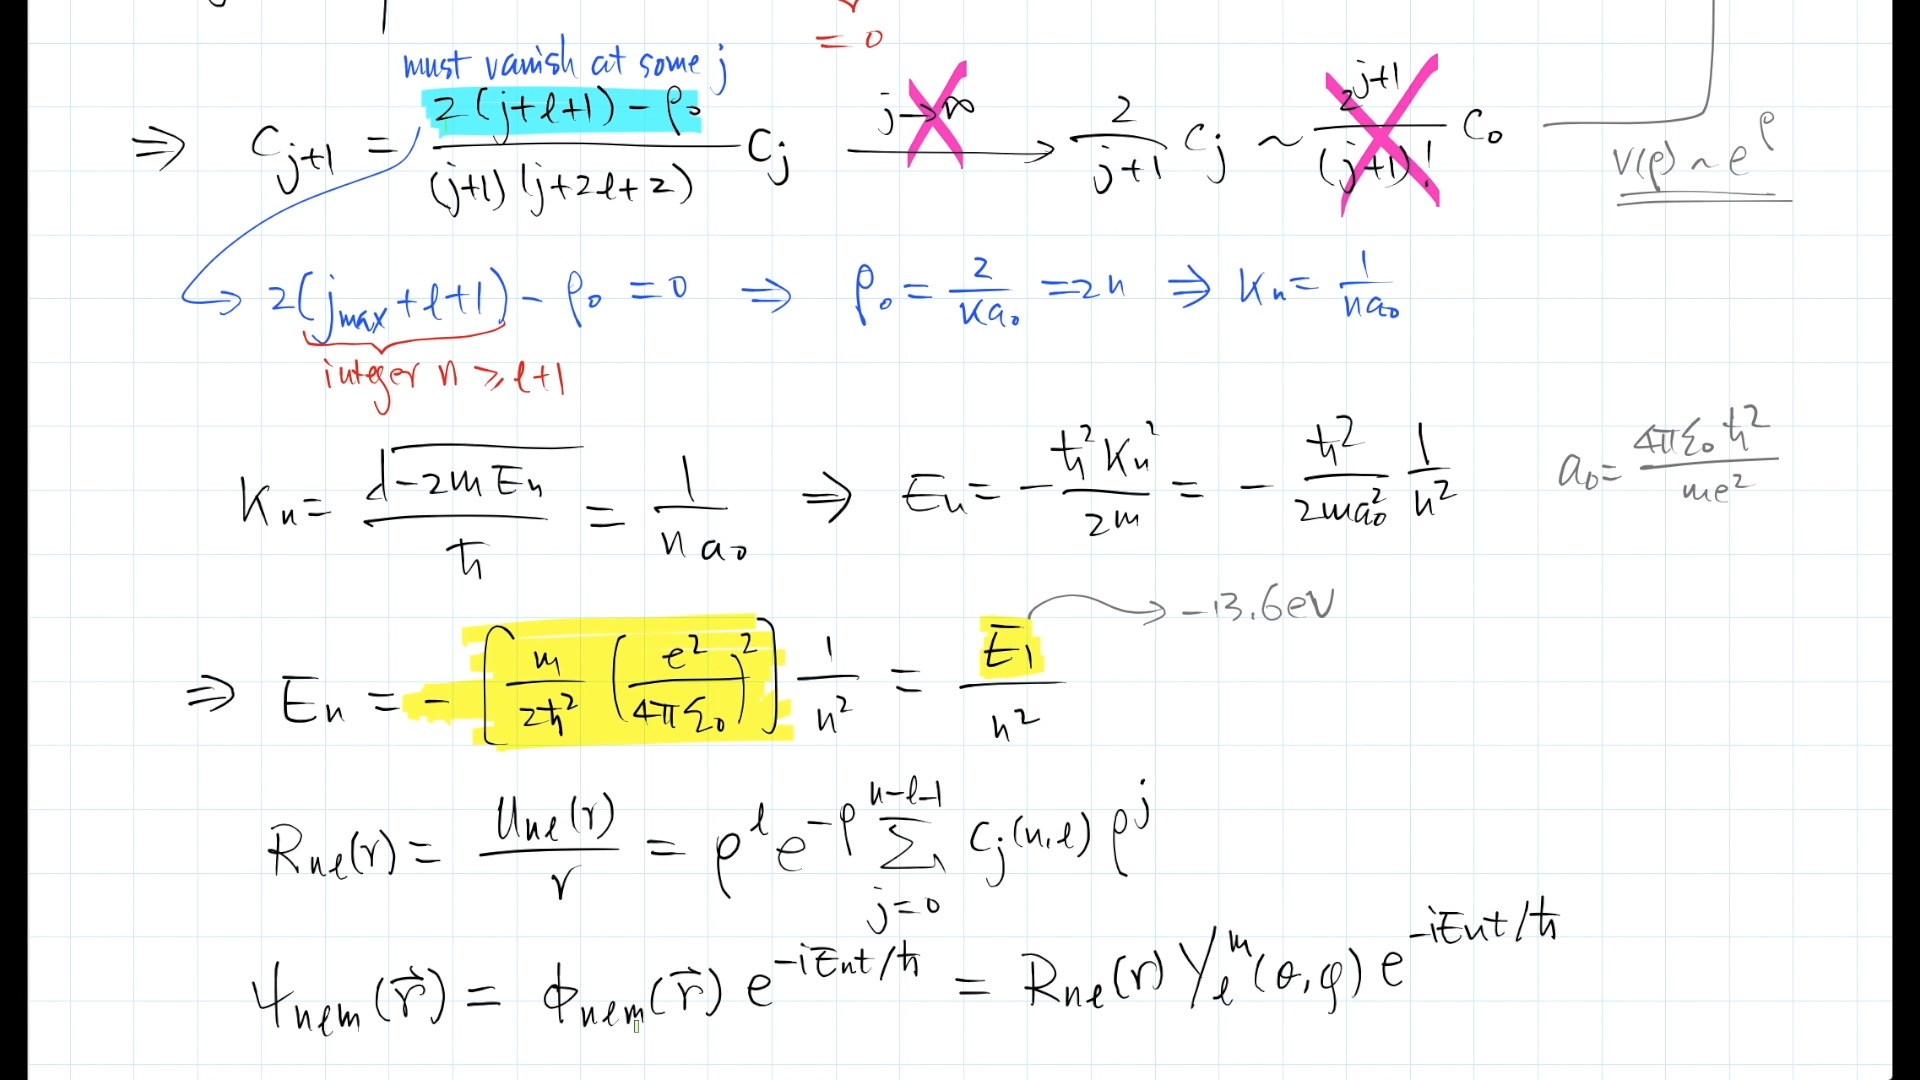 = 0
must vanish at some j
⇒ C_{j+1} = \frac{2(j+ℓ+1) - ρ_0}{(j+1)(j+2ℓ+2)} C_j \xrightarrow{j→∞} \frac{2}{j+1} C_j ~ \frac{2^{j+1}}{(j+1)!} C_0
v(ρ) ~ e^ρ
2(j_{max} + ℓ + 1) - ρ_0 = 0 ⇒ ρ_0 = \frac{2}{κa_0} = 2n ⇒ κ_n = \frac{1}{na_0}
integer n ⩾ ℓ+1
κ_n = \frac{\sqrt{-2mE_n}}{ℏ} = \frac{1}{na_0} ⇒ E_n = -\frac{ℏ^2 κ_n^2}{2m} = -\frac{ℏ^2}{2ma_0^2} \frac{1}{n^2}
a_0 = \frac{4πε_0ℏ^2}{me^2}
⇒ E_n = -[\frac{m}{2ℏ^2} (\frac{e^2}{4πε_0})^2] \frac{1}{n^2} = \frac{E_1}{n^2}
-13.6eV
R_{nℓ}(r) = \frac{u_{nℓ}(r)}{r} = ρ^ℓ e^{-ρ} \sum_{j=0}^{n-ℓ-1} C_j(n,ℓ) ρ^j
ψ_{nℓm}(\vec{r}) = ϕ_{nℓm}(\vec{r}) e^{-iE_nt/ℏ} = R_{nℓ}(r) Y_ℓ^m(θ,φ) e^{-iE_nt/ℏ}